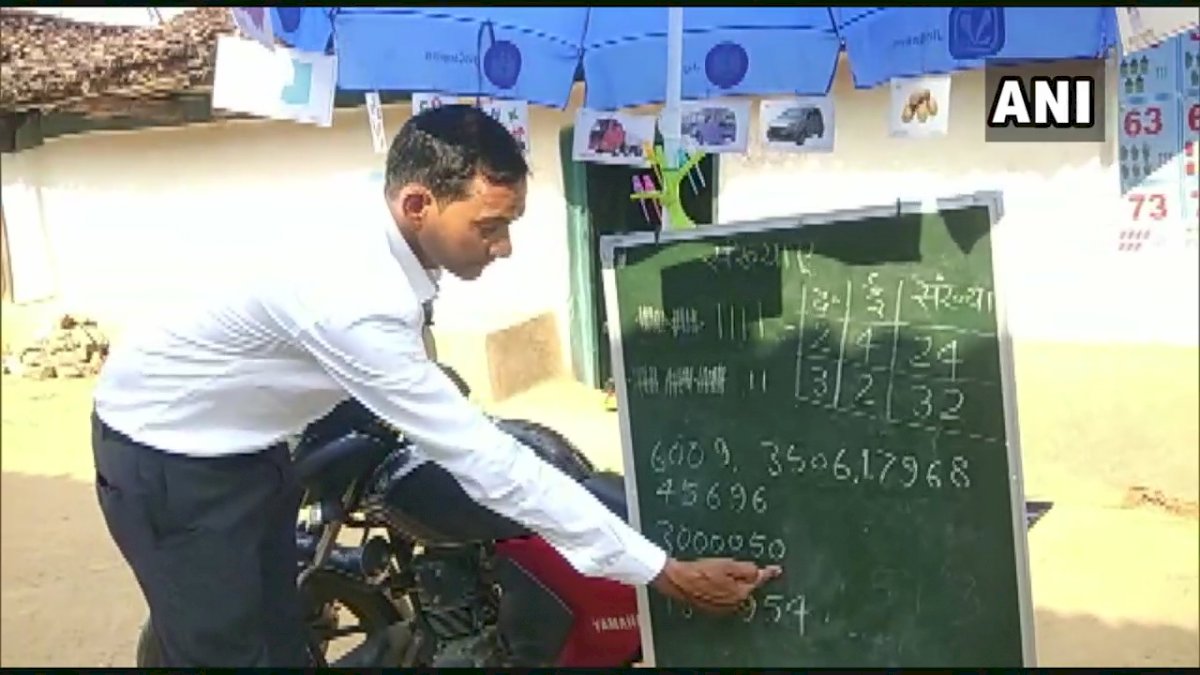 ANI
63
73
संख्याएँ
द. इ. संख्या
2 4 24
3 2 32
6009, 3506,17968
45696
3000050
954,
YAMAHA